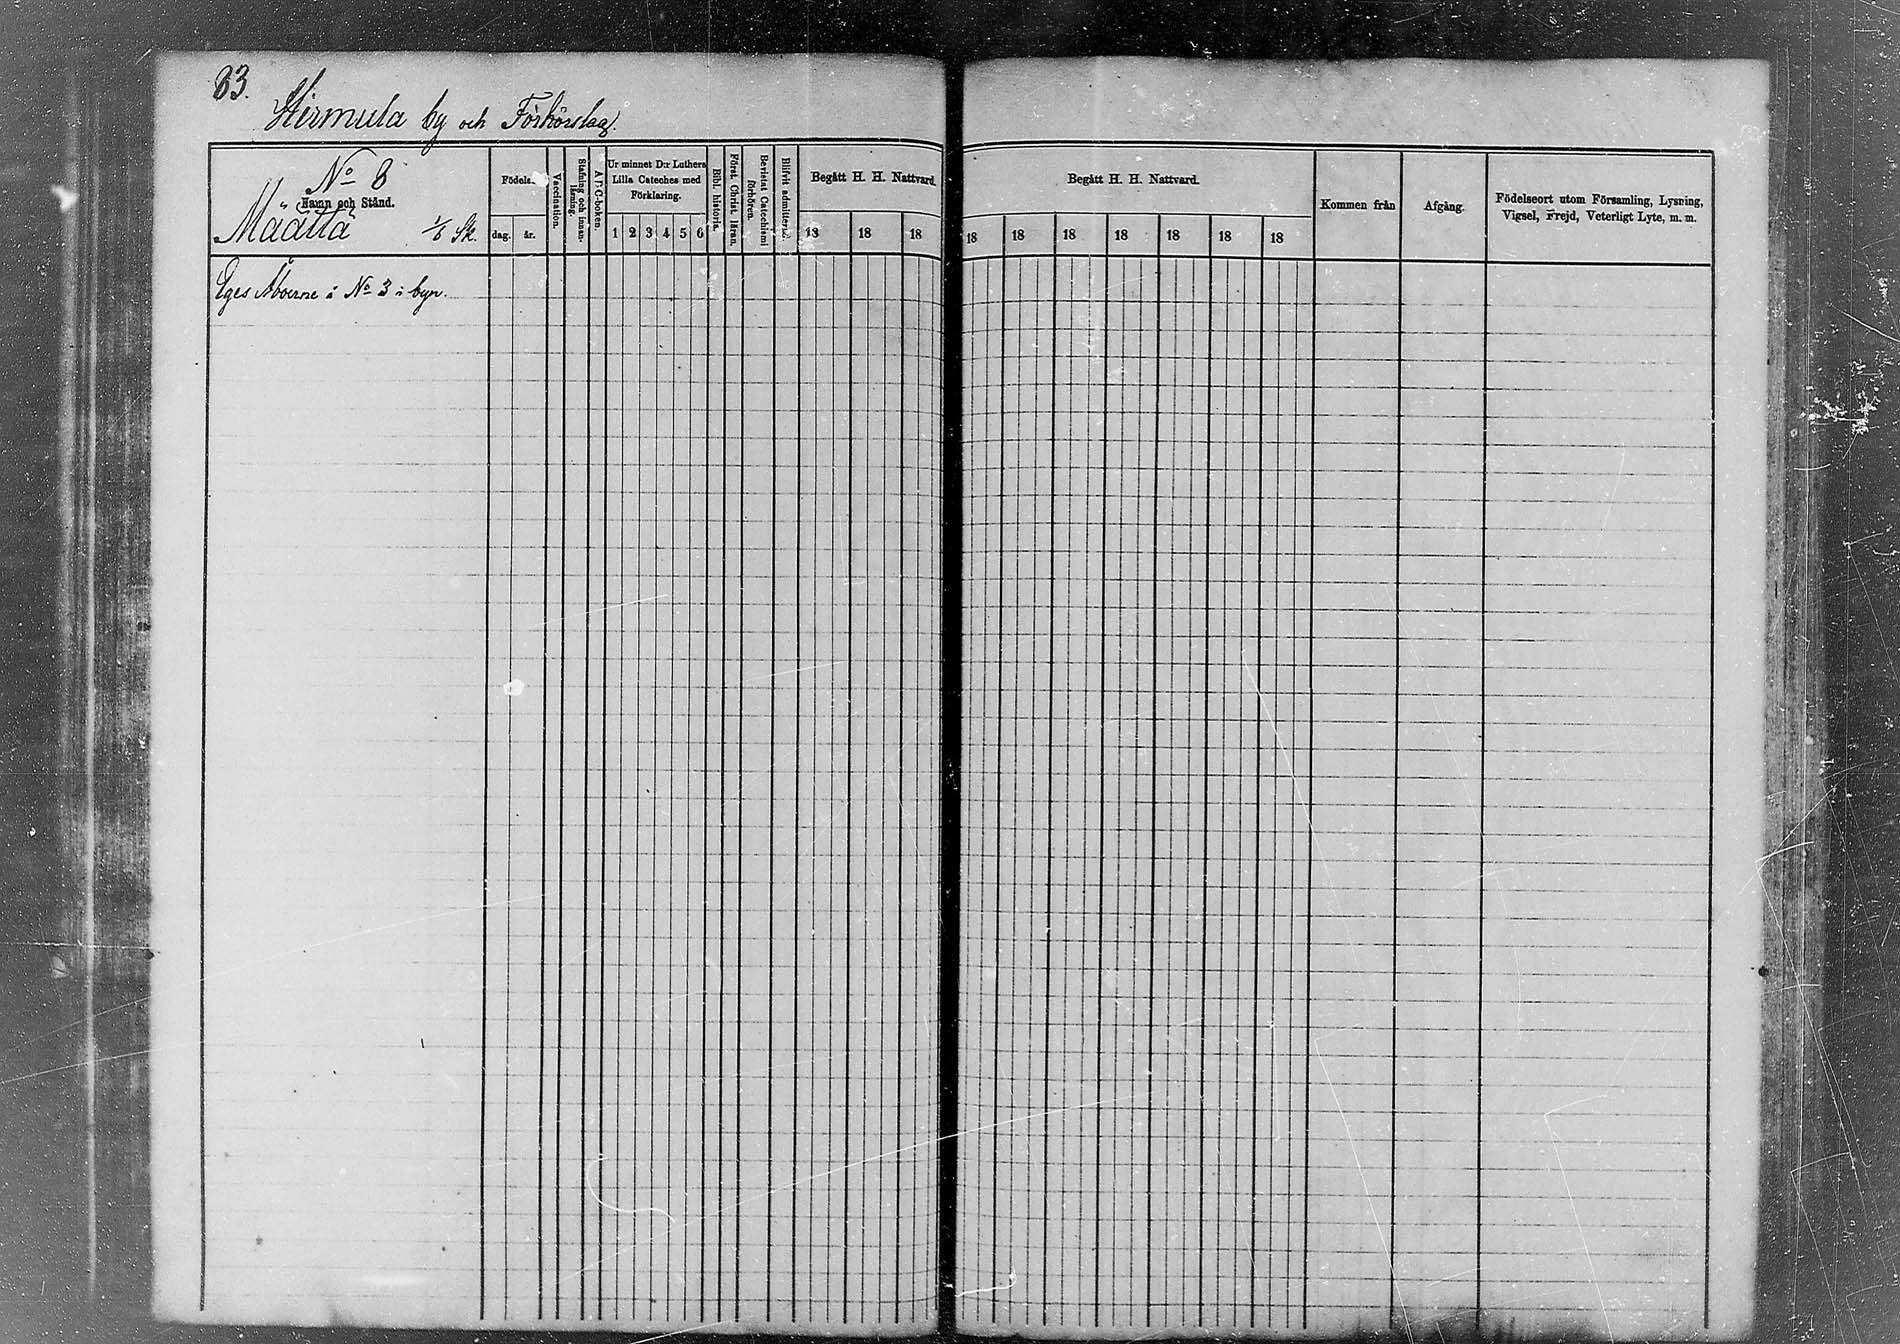 83.
Hirmula by och Förhörslag.
No 8
Namn och Stånd.
Määttä 1/6 Sk.
Födels.
dag. år.
Vaccination.
Stafning och innan-
läsning.
A B C-boken.
Ur minnet D:r Luthers
Lilla Cateches med
Förklaring.
1 2 3 4 5 6
Bibl. historia.
Först. Christ. läran.
Bevistat Catechismi
förhören.
Blifvit admitterad.
Begått H. H. Nattvard.
18 18 18
Begått H. H. Nattvard.
18 18 18 18 18 18 18
Kommen från
Afgång.
Födelseort utom Församling, Lysning,
Vigsel, Frejd, Veterligt Lyte, m. m.
Eges Åboerne å No 3 i byn.